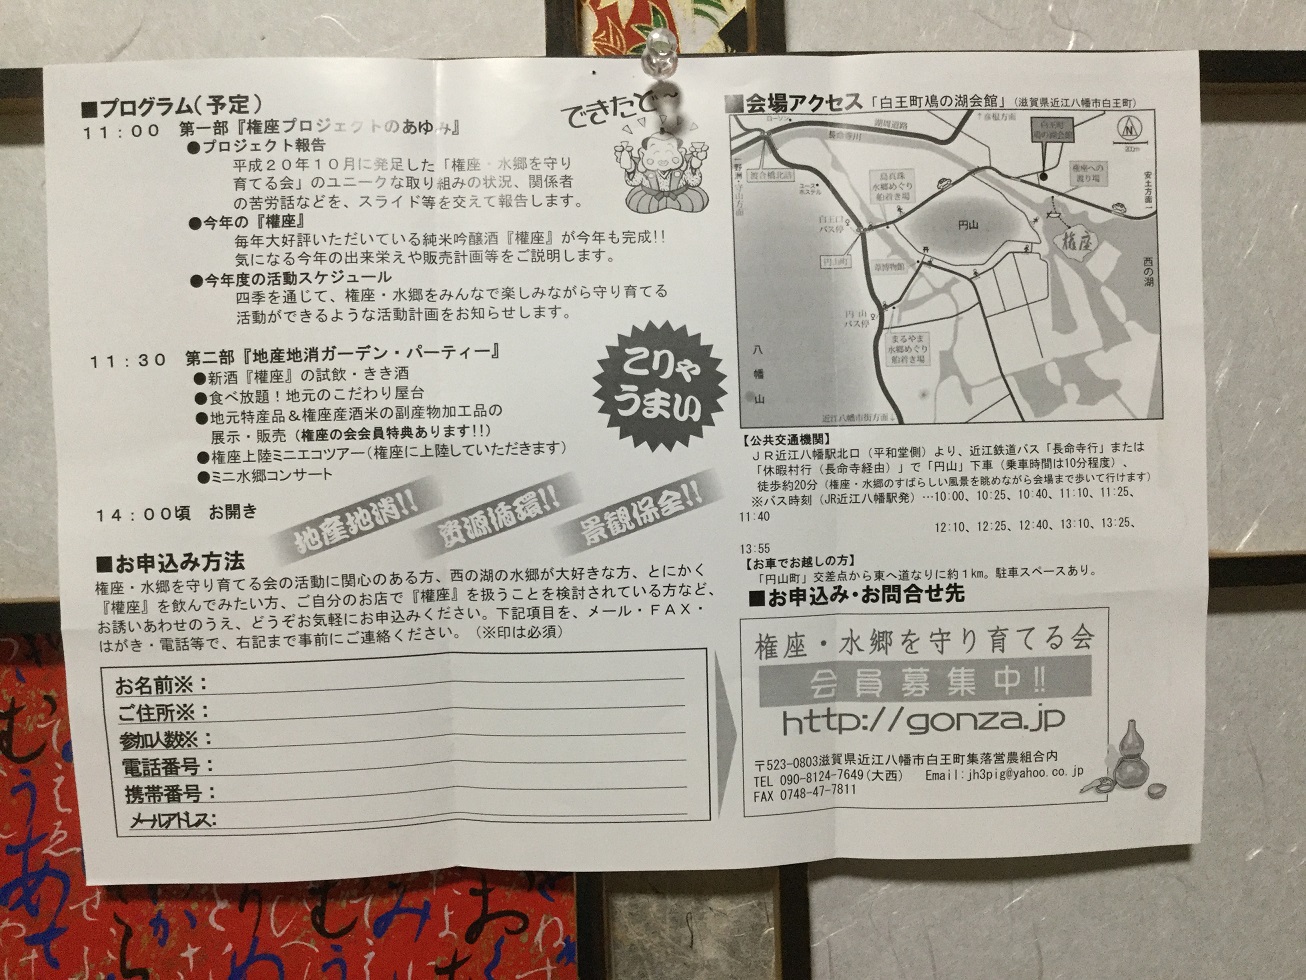 ■プログラム(予定)
11:00 第一部『権座プロジェクトのあゆみ』
●プロジェクト報告
平成20年10月に発足した「権座・水郷を守り
育てる会」のユニークな取り組みの状況、関係者
の苦労話などを、スライド等を交えて報告します。
●今年の『權座』
毎年大好評いただいている純米吟醸酒『權座』が今年も完成!!
気になる今年の出来栄えや販売計画等をご説明します。
●今年度の活動スケジュール
四季を通じて、権座・水郷をみんなで楽しみながら守り育てる
活動ができるような活動計画をお知らせします。
できたど~
11:30 第二部『地産地消ガーデン・パーティー』
●新酒『權座』の試飲・きき酒
●食べ放題!地元のこだわり屋台
●地元特産品&権座産酒米の副産物加工品の
展示・販売(権座の会会員特典あります!!)
●権座上陸ミニエコツアー(権座に上陸していただきます)
●ミニ水郷コンサート
こりゃ
うまい
14:00頃 お開き
地産地消!!
資源循環!!
景観保全!!
■お申込み方法
権座・水郷を守り育てる会の活動に関心のある方、西の湖の水郷が大好きな方、とにかく
『權座』を飲んでみたい方、ご自分のお店で『權座』を扱うことを検討されている方など、
お誘いあわせのうえ、どうぞお気軽にお申込みください。下記項目を、メール・FAX・
はがき・電話等で、右記まで事前にご連絡ください。(※印は必須)
お名前※:
ご住所※:
参加人数※:
電話番号:
携帯番号:
メールアドレス:
■会場アクセス「白王町鳰の湖会館」(滋賀県近江八幡市白王町)
ローソン
湖周道路
長命寺川
↑彦根方面
白王町
鳰の湖会館
N
渡合橋北詰
野洲・守山方面
ユースホステル
島真珠
水郷めぐり
船着き場
権座への
渡り場
安土方面
白王口
バス停
円山
権座
円山町
葦博物館
西の湖
円山
バス停
まるやま
水郷めぐり
船着き場
八幡山
近江八幡市街方面↓
【公共交通機関】
JR近江八幡駅北口(平和堂側)より、近江鉄道バス「長命寺行」または
「休暇村行(長命寺経由)」で「円山」下車(乗車時間は10分程度)、
徒歩約20分(権座・水郷のすばらしい風景を眺めながら会場まで歩いて行けます)
※バス時刻(JR近江八幡駅発)…10:00、10:25、10:40、11:10、11:25、
11:40
12:10、12:25、12:40、13:10、13:25、
13:55
【お車でお越しの方】
「円山町」交差点から東へ道なりに約1km。駐車スペースあり。
■お申込み・お問合せ先
権座・水郷を守り育てる会
会員募集中!!
http://gonza.jp
〒523-0803滋賀県近江八幡市白王町集落営農組合内
TEL 090-8124-7649(大西) Email:jh3pig@yahoo.co.jp
FAX 0748-47-7811